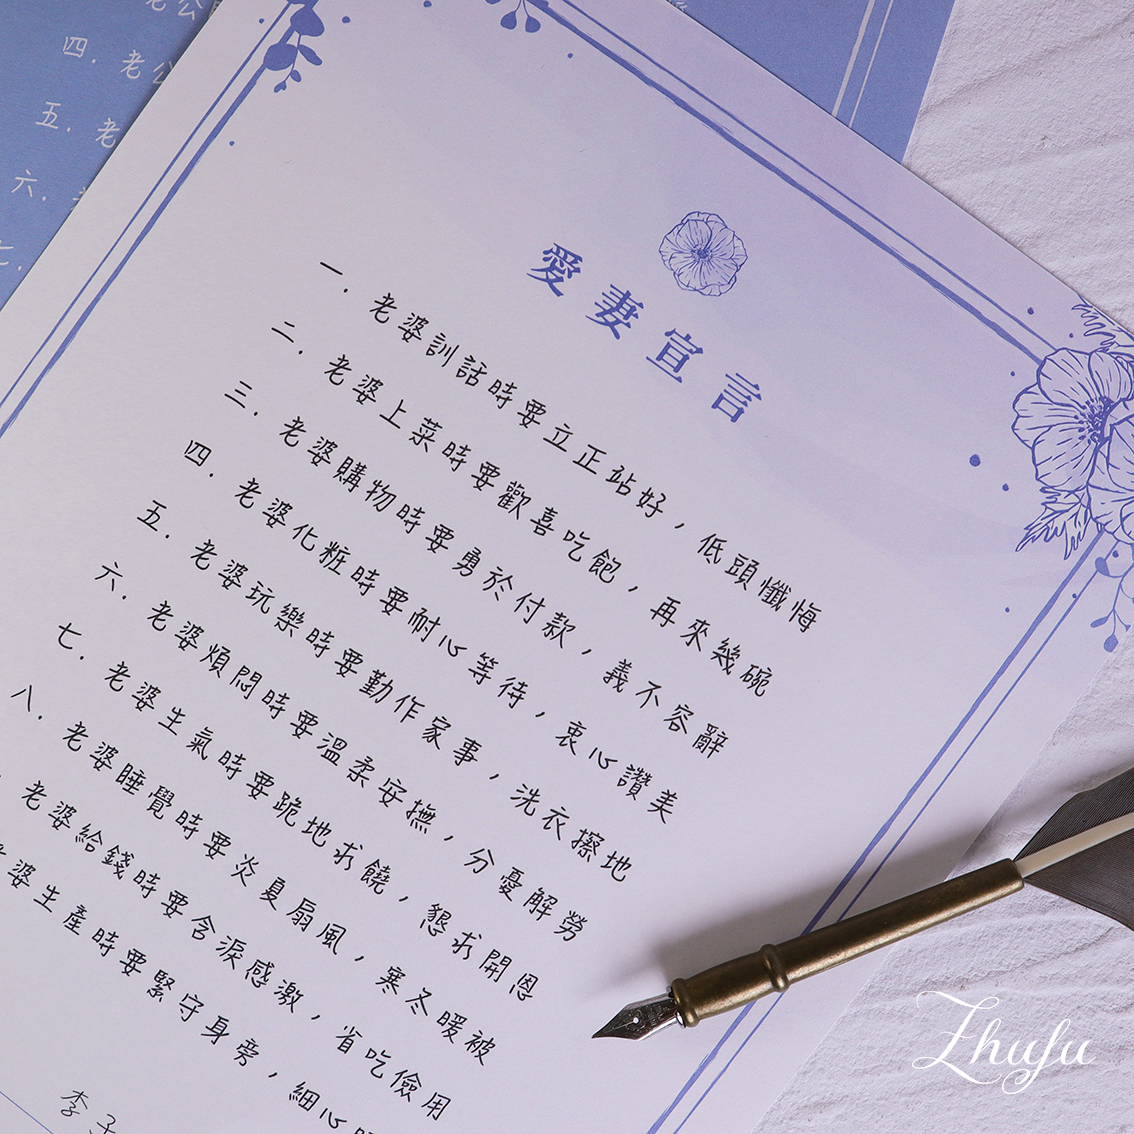 四. 老公
五. 老
六.
七.
愛妻宣言
一. 老婆訓話時要立正站好，低頭懺悔
二. 老婆上菜時要歡喜吃飽，再來幾碗
三. 老婆購物時要勇於付款，義不容辭
四. 老婆化粧時要耐心等待，衷心讚美
五. 老婆玩樂時要勤作家事，洗衣擦地
六. 老婆煩悶時要溫柔安撫，分憂解勞
七. 老婆生氣時要跪地求饒，懇求開恩
八. 老婆睡覺時要炎夏扇風，寒冬暖被
老婆給錢時要含淚感激，省吃儉用
老婆生產時要緊守身旁，細心
李
Zhufu